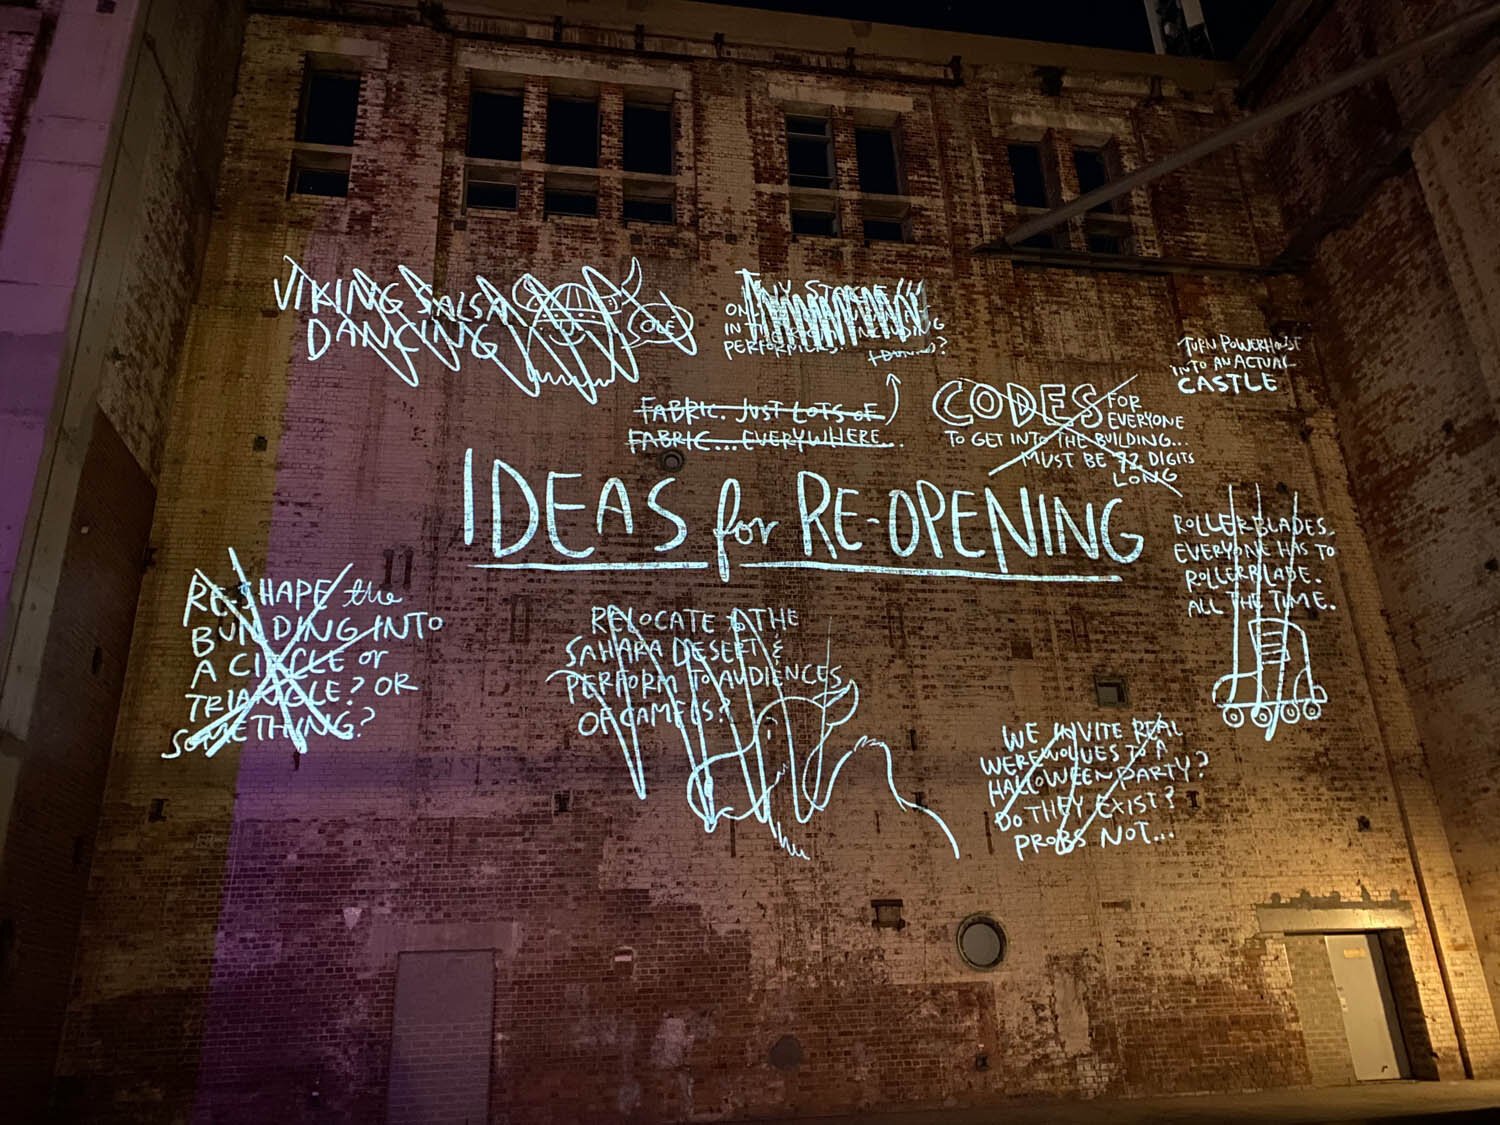 VIKING SALSA
DANCING
OLE
ON
IN
PERFORMERS.
FABRIC. JUST LOTS OF
FABRIC... EVERYWHERE...
CODES FOR
EVERYONE
TO GET INTO THE BUILDING...
MUST BE 92 DIGITS
LONG
TURN POWERHOUSE
INTO AN ACTUAL
CASTLE
IDEAS for RE-OPENING
RESHAPE the
BUILDING INTO
A CIRCLE or
TRIANGLE? OR
SOMETHING?
RELOCATE to THE
SAHARA DESERT &
PERFORM TO AUDIENCES
OF CAMELS?
ROLLERBLADES.
EVERYONE HAS TO
ROLLERBLADE.
ALL THE TIME.
WE INVITE REAL
WEREWOLVES TO A
HALLOWEEN PARTY?
DO THEY EXIST?
PROBS NOT...